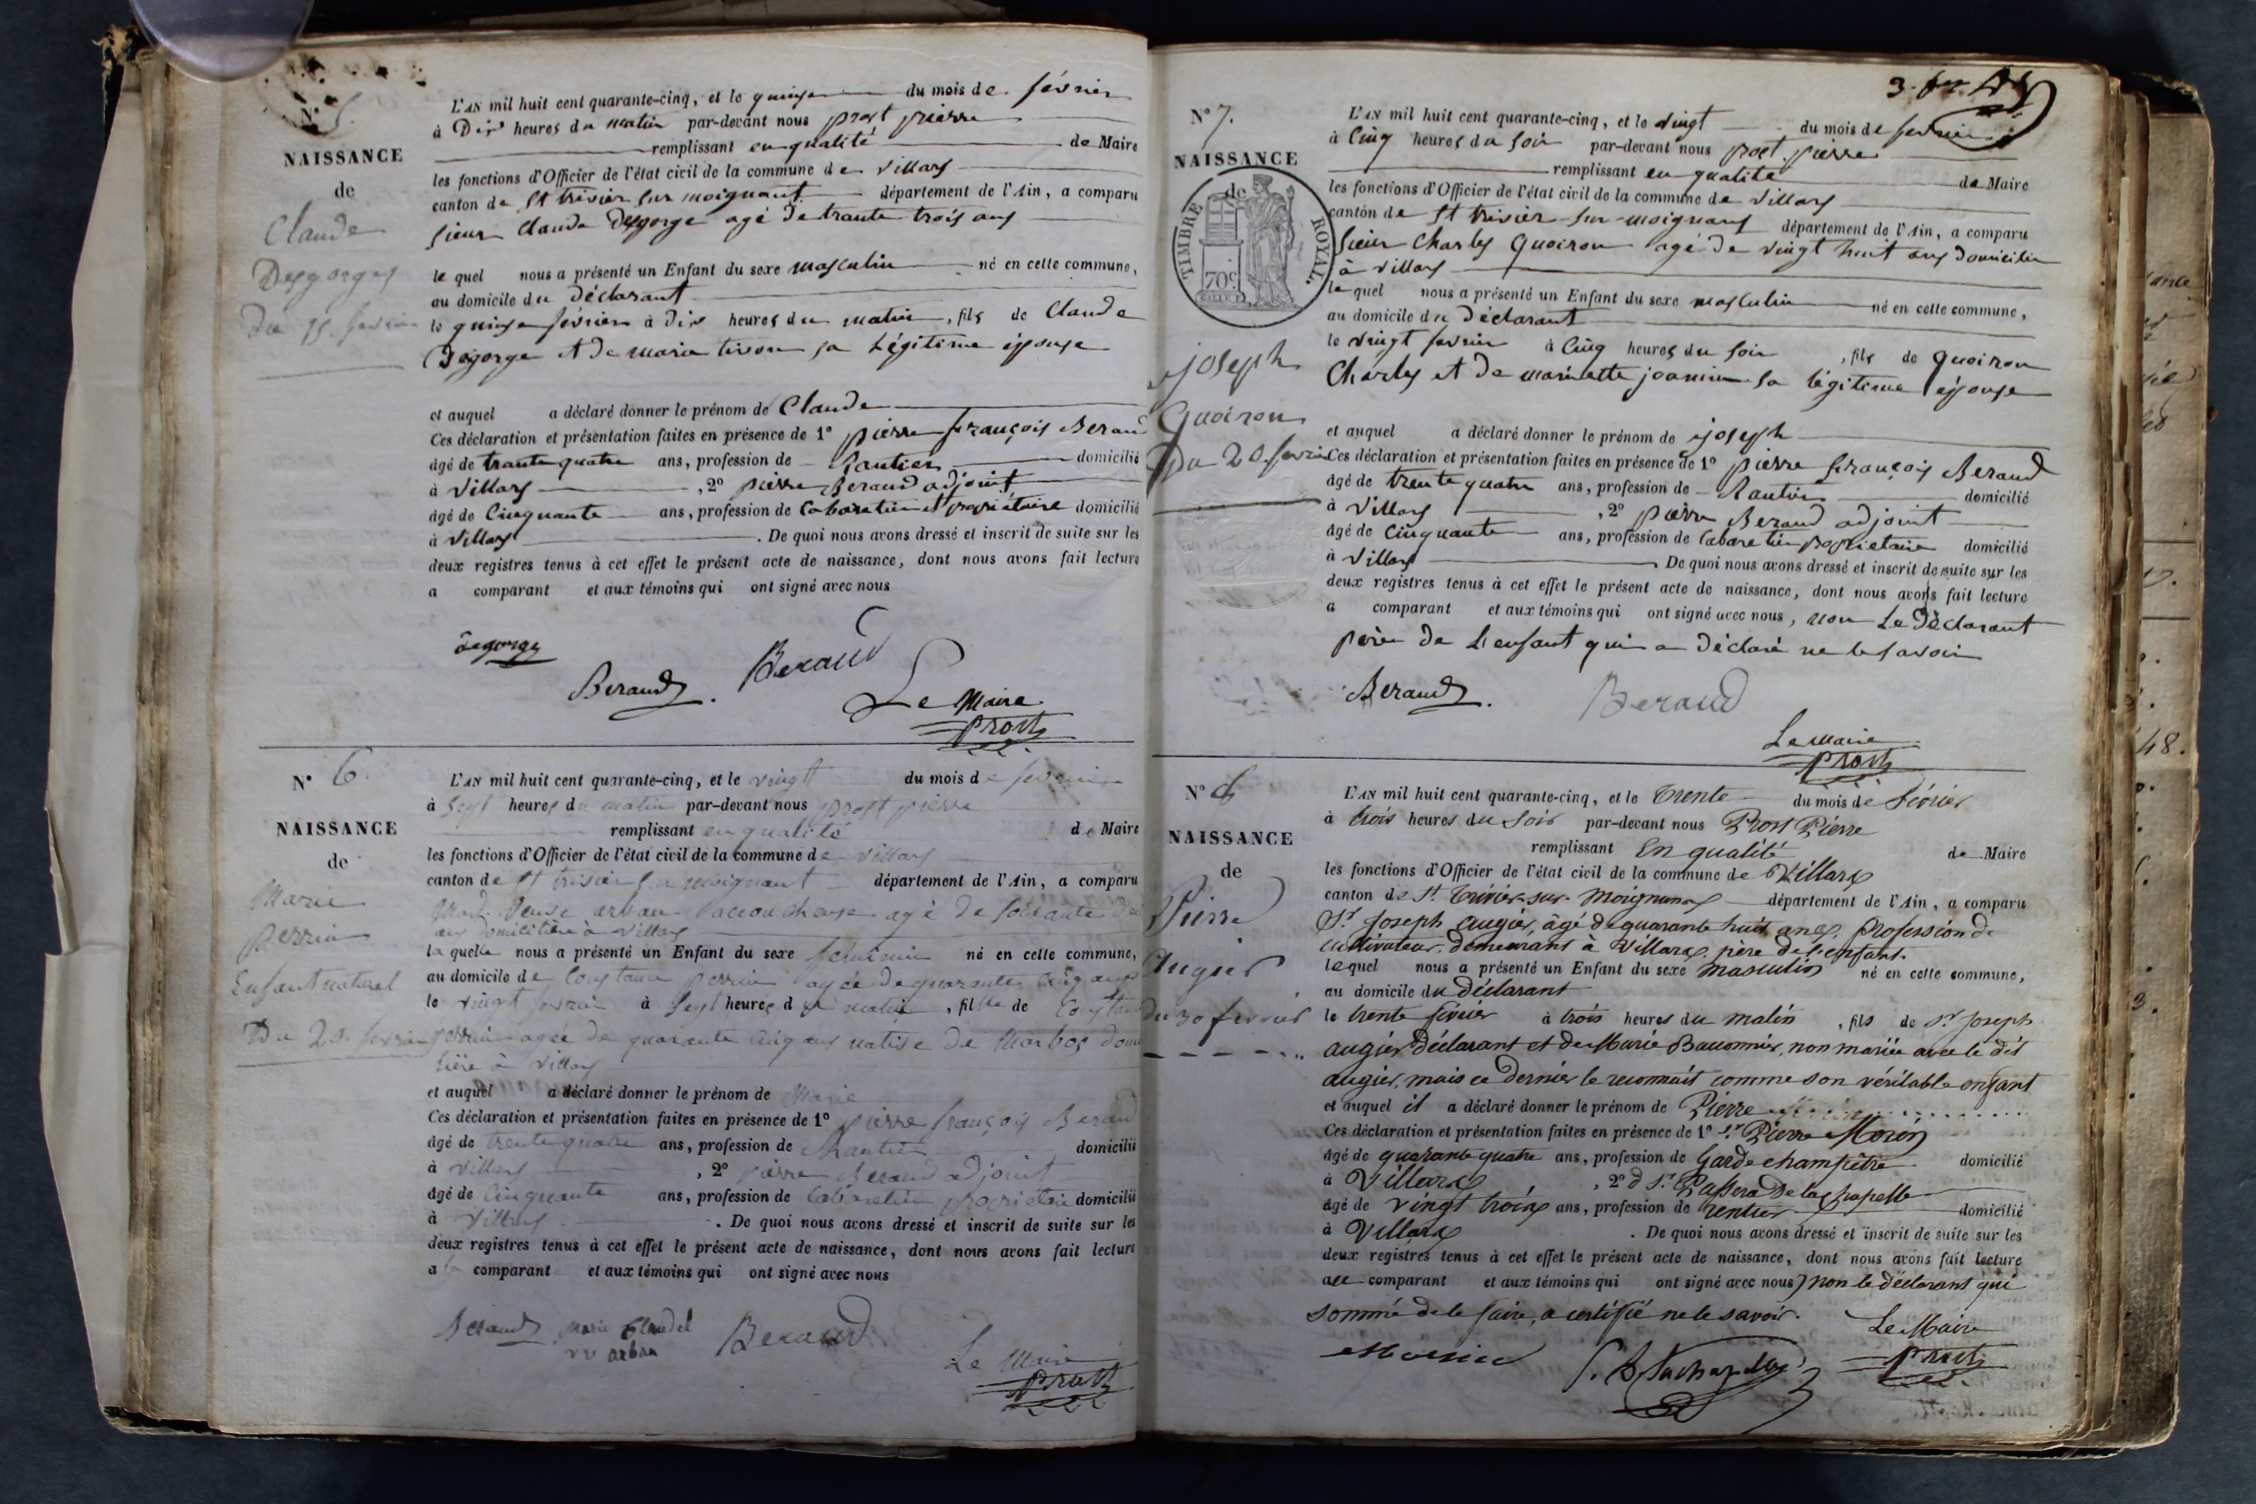 N° 5.
NAISSANCE
de
Claude
Degorges
Du 15. fevrier
L'AN mil huit cent quarante-cinq, et le quinze du mois de février
à Dix heures du matin par-devant nous prost pierre
remplissant en qualité de Maire
les fonctions d'Officier de l'état civil de la commune de villars
canton de St trivier sur moignant département de l'Ain, a comparu
sieur Claude Degorge agé de trante trois ans
le quel nous a présenté un Enfant du sexe masculin né en cette commune,
au domicile du déclarant
le quinze février à dix heures du matin, fils de Claude
Degorge et de marie tison sa légitime épouse
et auquel a déclaré donner le prénom de Claude
Ces déclaration et présentation faites en présence de 1° pierre françois Beraud
âgé de trante quatre ans, profession de Rantier domicilié
à villars, 2° pierre Beraud adjoint
âgé de Cinquante ans, profession de Cabaretier et propriétaire domicilié
à villars. De quoi nous avons dressé et inscrit de suite sur les
deux registres tenus à cet effet le présent acte de naissance, dont nous avons fait lecture
a comparant et aux témoins qui ont signé avec nous
degorge
Beraud. Beraud
Le Maire
Prost
N° 6.
NAISSANCE
de
Marie
perrin
Enfant naturel
Du 20. fevrier
L'AN mil huit cent quarante-cinq, et le vingt du mois de fevrier
à Sept heures du matin par-devant nous prost pierre
remplissant en qualité de Maire
les fonctions d'Officier de l'état civil de la commune de villars
canton de St trivier sur moignant département de l'Ain, a comparu
veuve arban agé de soixante
ans domicilière à villars
la quelle nous a présenté un Enfant du sexe feminin né en cette commune,
au domicile de Constance perrin agée de quarante cinq ans
le vingt fevrier à Sept heures du matin, fille de Constance
perrin agée de quarante cinq ans native de Marboz domi
lière à villars
et auquel a déclaré donner le prénom de Marie
Ces déclaration et présentation faites en présence de 1° pierre françois Beraud
âgé de trente quatre ans, profession de Rantier domicilié
à villars, 2° pierre Beraud adjoint
âgé de Cinquante ans, profession de Cabaretier propriétaire domicilié
à villars. De quoi nous avons dressé et inscrit de suite sur les
deux registres tenus à cet effet le présent acte de naissance, dont nous avons fait lecture
a la comparant et aux témoins qui ont signé avec nous
Beraud marie Claudel Beraud
vv arban
Le Maire
Prost
N° 7.
NAISSANCE
de
TIMBRE ROYAL.
70c
joseph
Quoiron
Du 20. fevrier
L'AN mil huit cent quarante-cinq, et le vingt du mois de fevrier
à Cinq heures du soir par-devant nous prost pierre
remplissant en qualité de Maire
les fonctions d'Officier de l'état civil de la commune de villars
canton de St trivier sur moignans département de l'Ain, a comparu
sieur Charles Quoiron agé de vingt huit ans domicilié
à villars
le quel nous a présenté un Enfant du sexe masculin né en cette commune,
au domicile du déclarant
le vingt fevrier à Cinq heures du soir, fils de Quoiron
Charles et de mariette joannin sa légitime épouse
et auquel a déclaré donner le prénom de joseph
Ces déclaration et présentation faites en présence de 1° pierre françois Beraud
âgé de trente quatre ans, profession de Rantier domicilié
à villars, 2° pierre Beraud adjoint
âgé de Cinquante ans, profession de Cabaretier propriétaire domicilié
à villars De quoi nous avons dressé et inscrit de suite sur les
deux registres tenus à cet effet le présent acte de naissance, dont nous avons fait lecture
a comparant et aux témoins qui ont signé avec nous, non Le déclarant
père de l'enfant qui a déclaré ne le savoir
Beraud. Beraud
Le Maire
Prost
N° 8
NAISSANCE
de
Pierre
Augier
du 30 fevrier
L'AN mil huit cent quarante-cinq, et le Trente du mois de Février
à trois heures du Soir par-devant nous Prost Pierre
remplissant En qualité de Maire
les fonctions d'Officier de l'état civil de la commune de Villars
canton de St Trivier-sur-Moignans département de l'Ain, a comparu
Sr Joseph augier, âgé de quarante huit ans, profession de
cultivateur, demeurant à Villars, père de l'enfant.
lequel nous a présenté un Enfant du sexe masculin né en cette commune,
au domicile du déclarant
le trente février à trois heures du matin, fils de Sr Joseph
augier déclarant et de Marie Bauonnier, non mariée avec le dit
augier, mais ce dernier le reconnait comme son véritable enfant
et auquel il a déclaré donner le prénom de Pierre
Ces déclaration et présentation faites en présence de 1° Sr Pierre Morin
âgé de quarante quatre ans, profession de Garde champêtre domicilié
à Villars, 2° d Sr Passera de la chapelle
âgé de vingt trois ans, profession de rentier domicilié
à Villars. De quoi nous avons dressé et inscrit de suite sur les
deux registres tenus à cet effet le présent acte de naissance, dont nous avons fait lecture
au comparant et aux témoins qui ont signé avec nous, non le déclarant qui
sommé de le faire, a certifié ne le savoir.
Le Maire
Prost